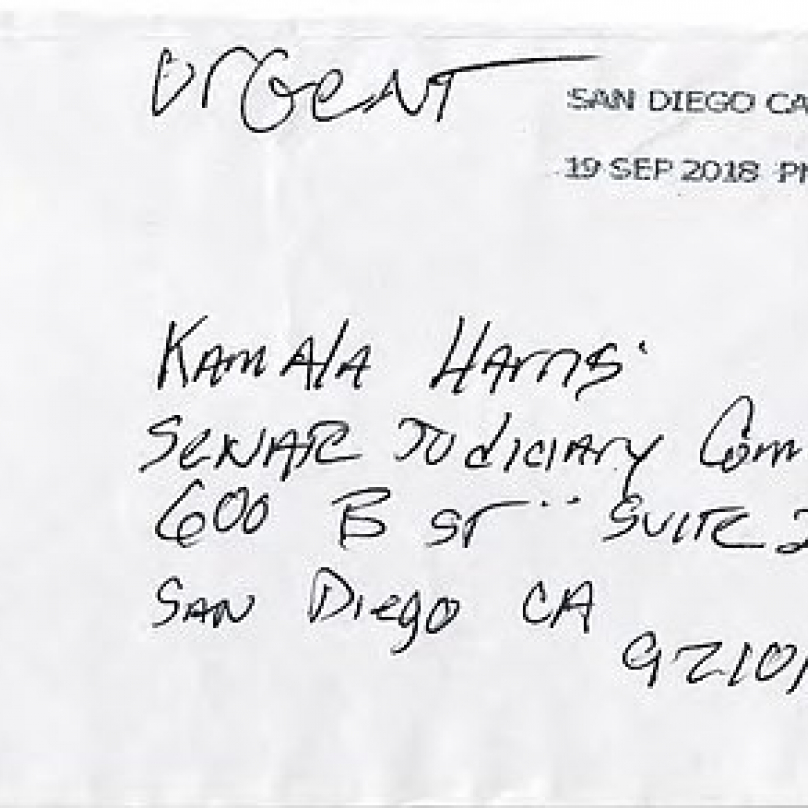 UrGeNT
SAN DIEGO CA
19 SEP 2018 PM
KAmAlA HArris
SeNATE JUdiciAry Com
600 B ST SUITE 2
SAN Diego CA
92101